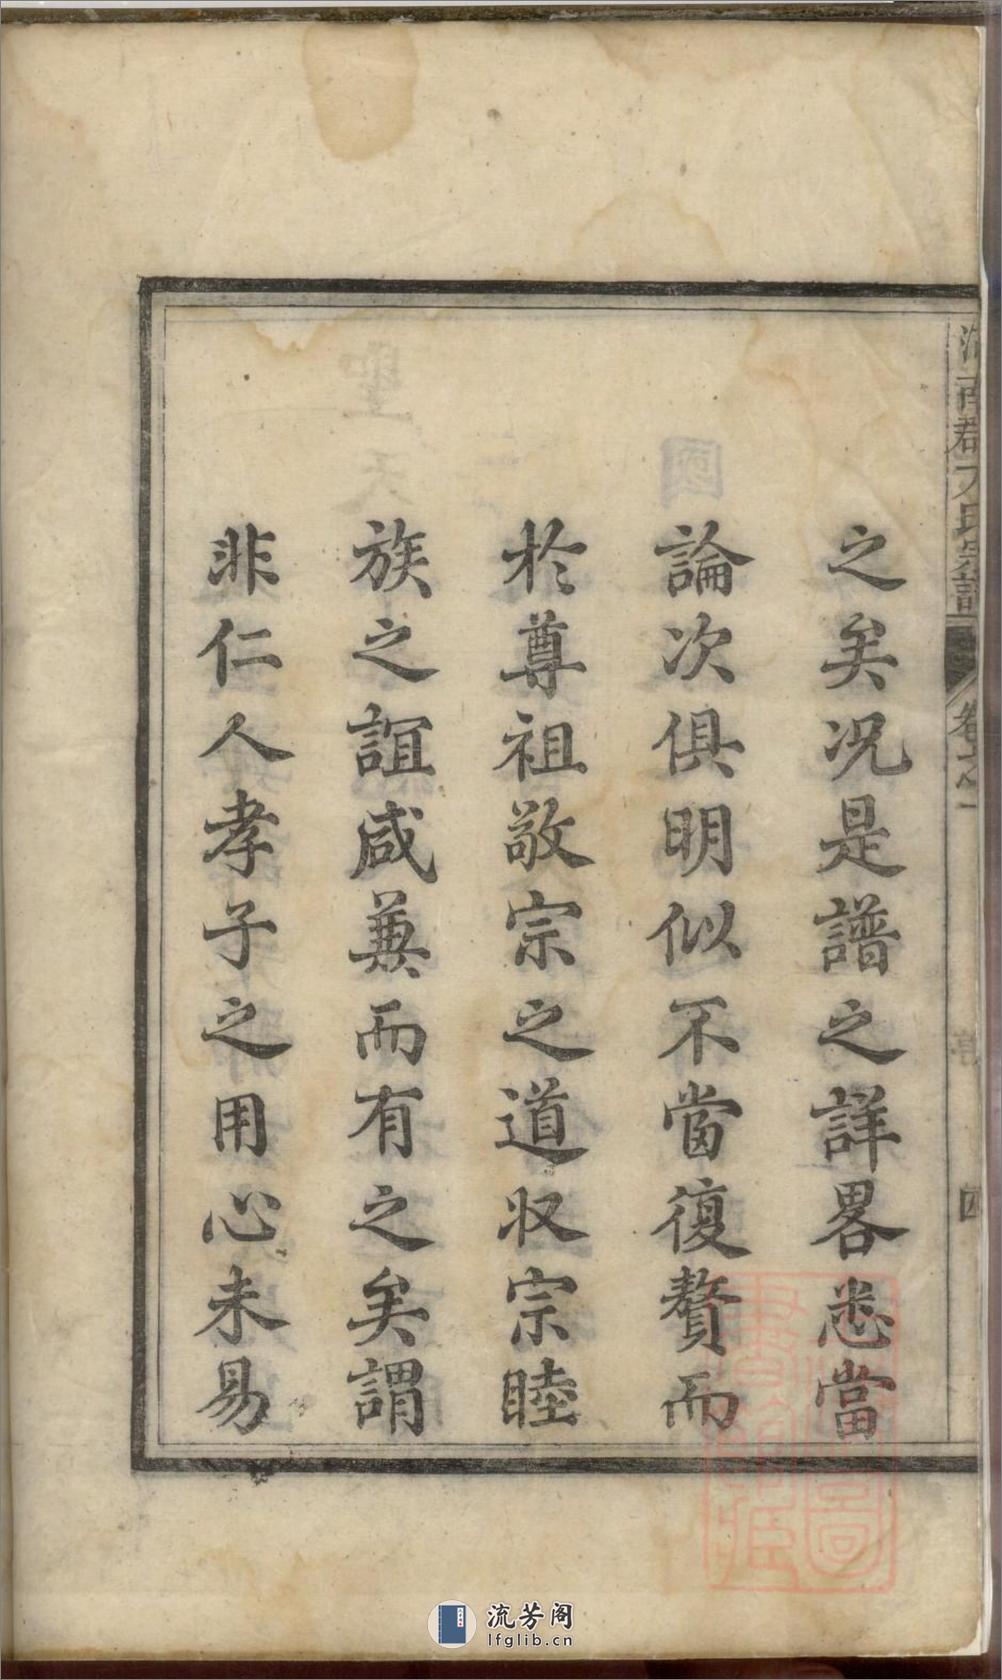 之矣况是譜之詳畧悉當
論次俱明似不當復贅而
於尊祖敬宗之道収宗睦
族之誼咸兼而有之矣謂
非仁人孝子之用心未易
卷之一
四
流芳阁
lfglib.cn